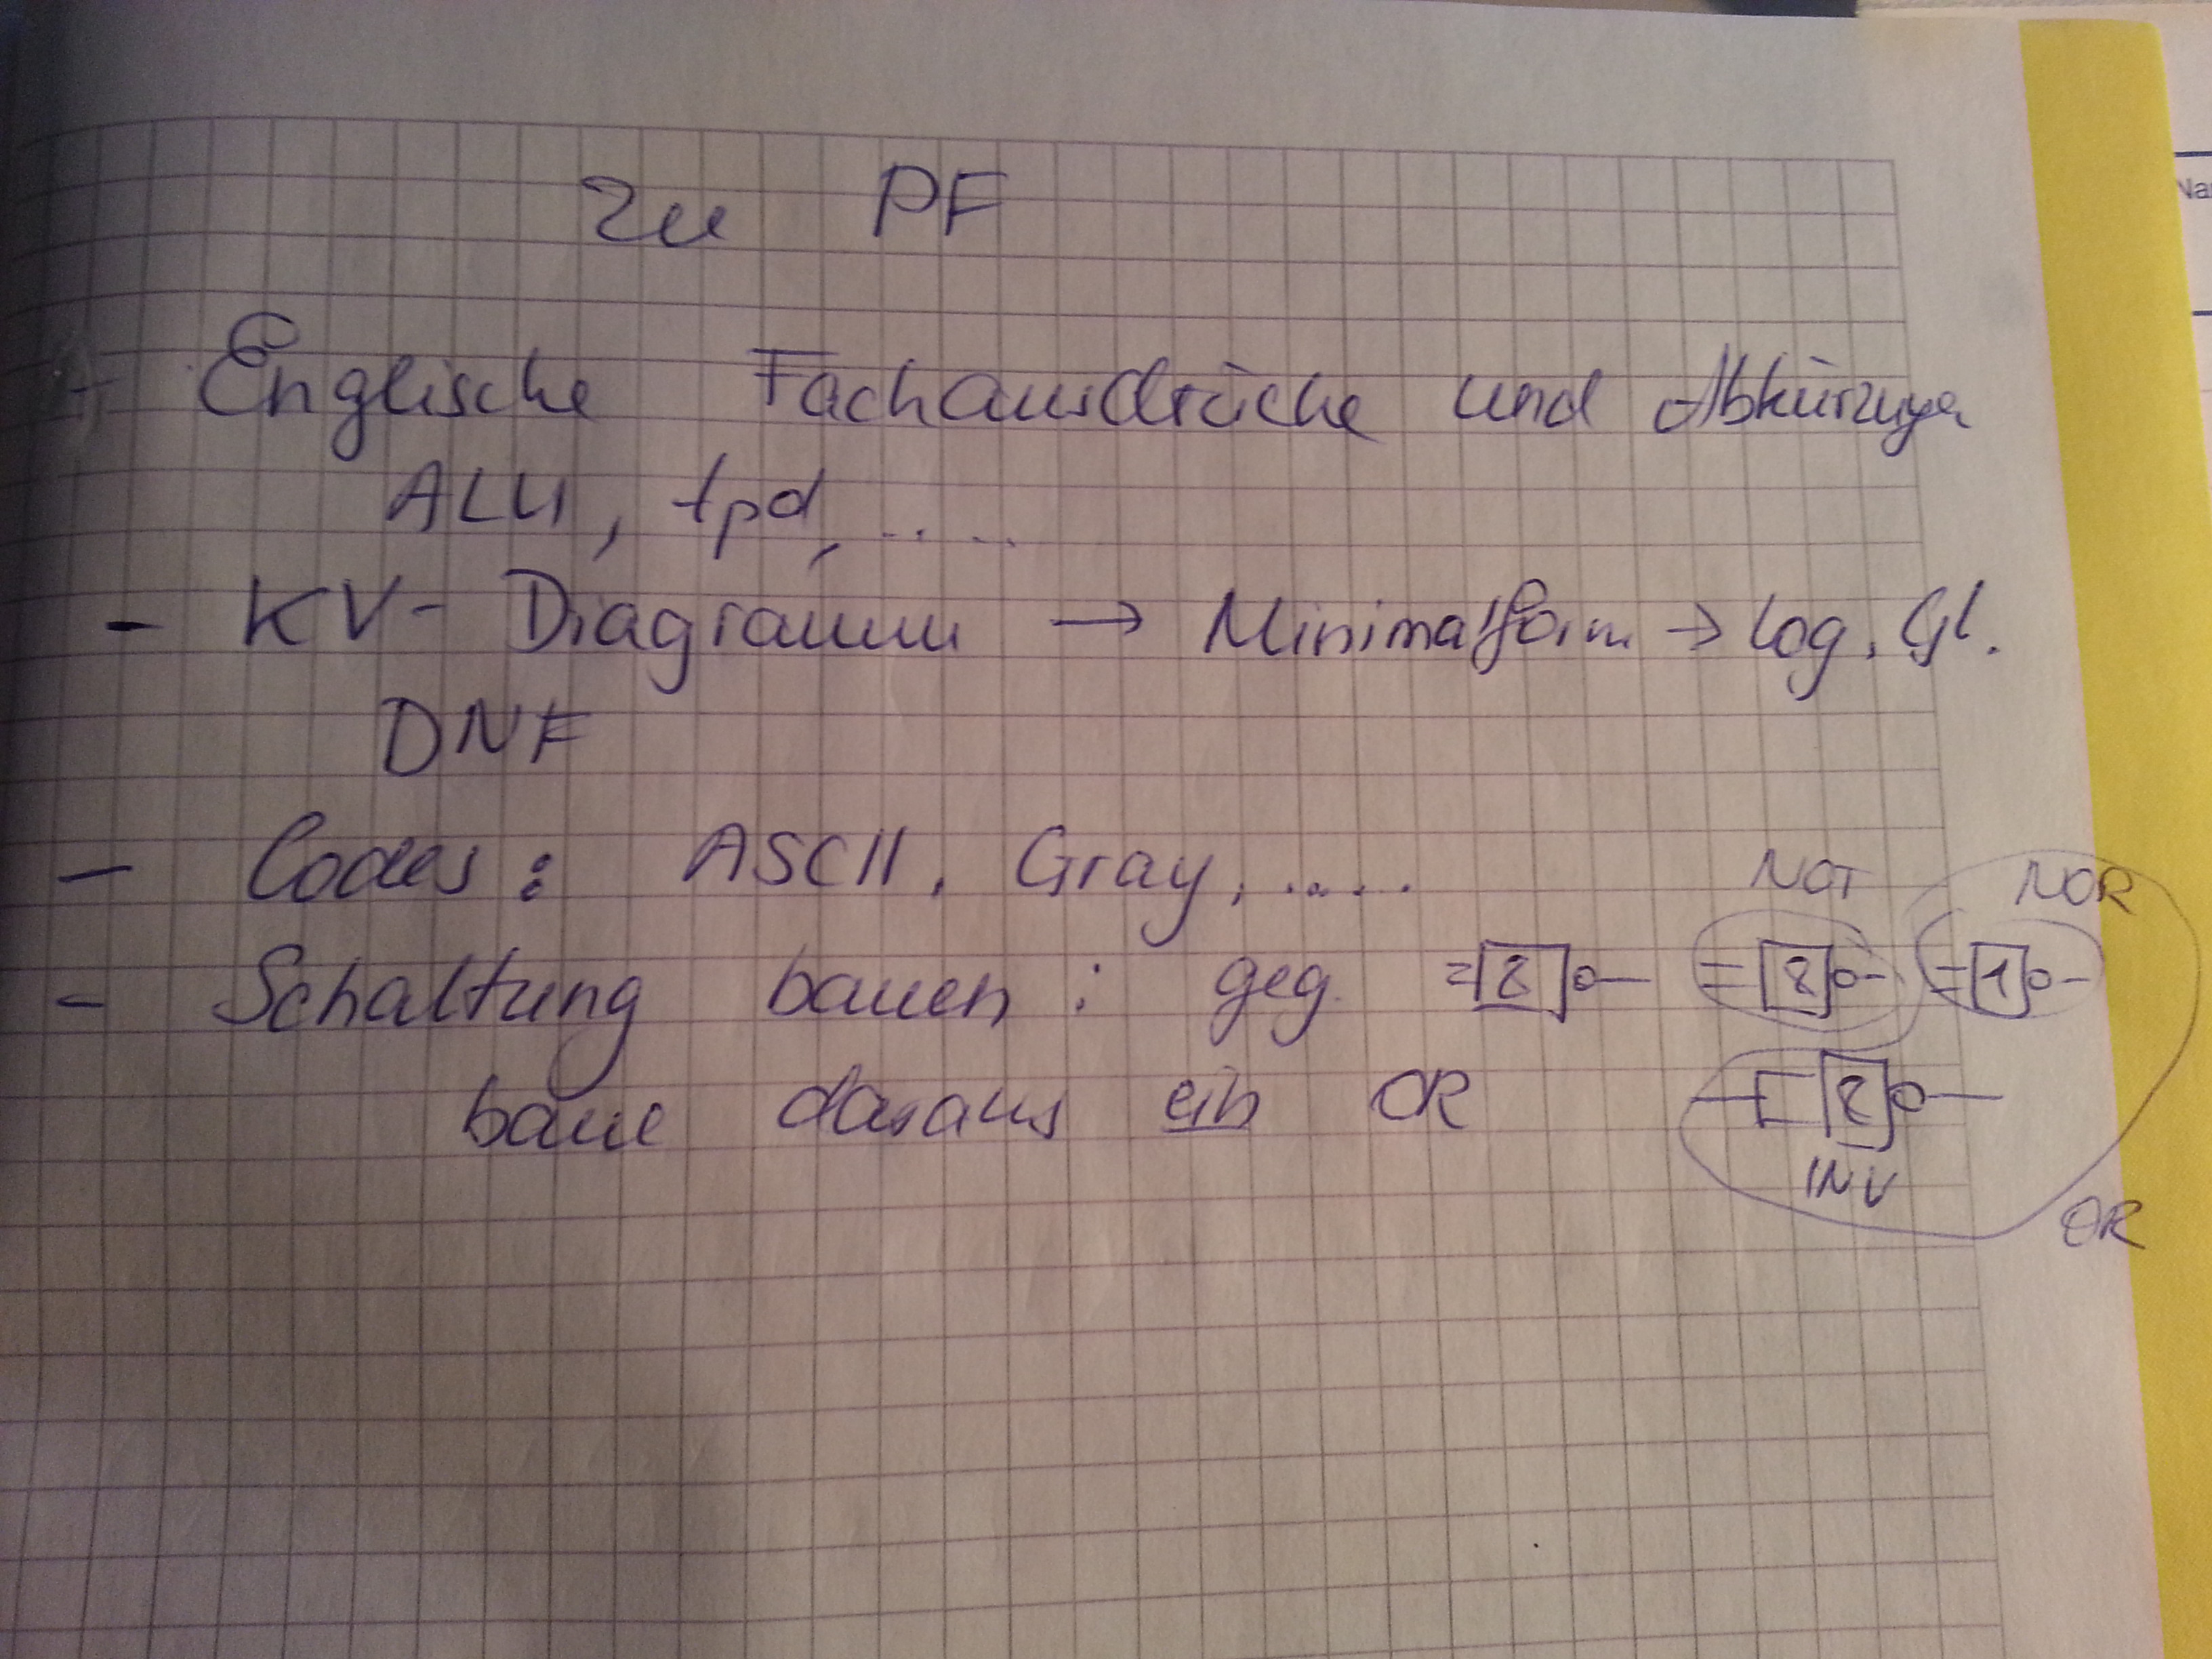 zu PF
- Englische Fachausdrücke und Abkürzungen
ALU, tpd, .....
- KV-Diagramm → Minimalform → log. Gl.
DNF
- Codes: ASCII, Gray, .....
NOT NOR
- Schaltung bauen: geg. & & 1
baue daraus ein OR &
INV
OR